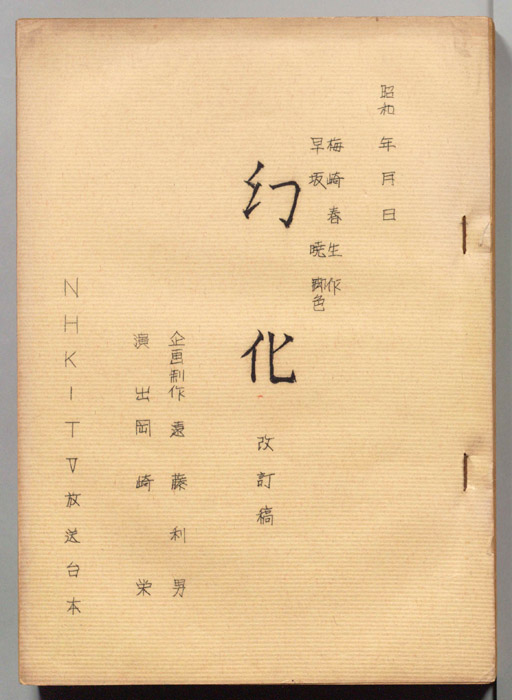 昭和 年 月 日
梅崎春生 作
早坂 暁 脚色
幻化
改訂稿
企画制作 遠藤利男
演出 岡崎栄
NHKITV放送台本